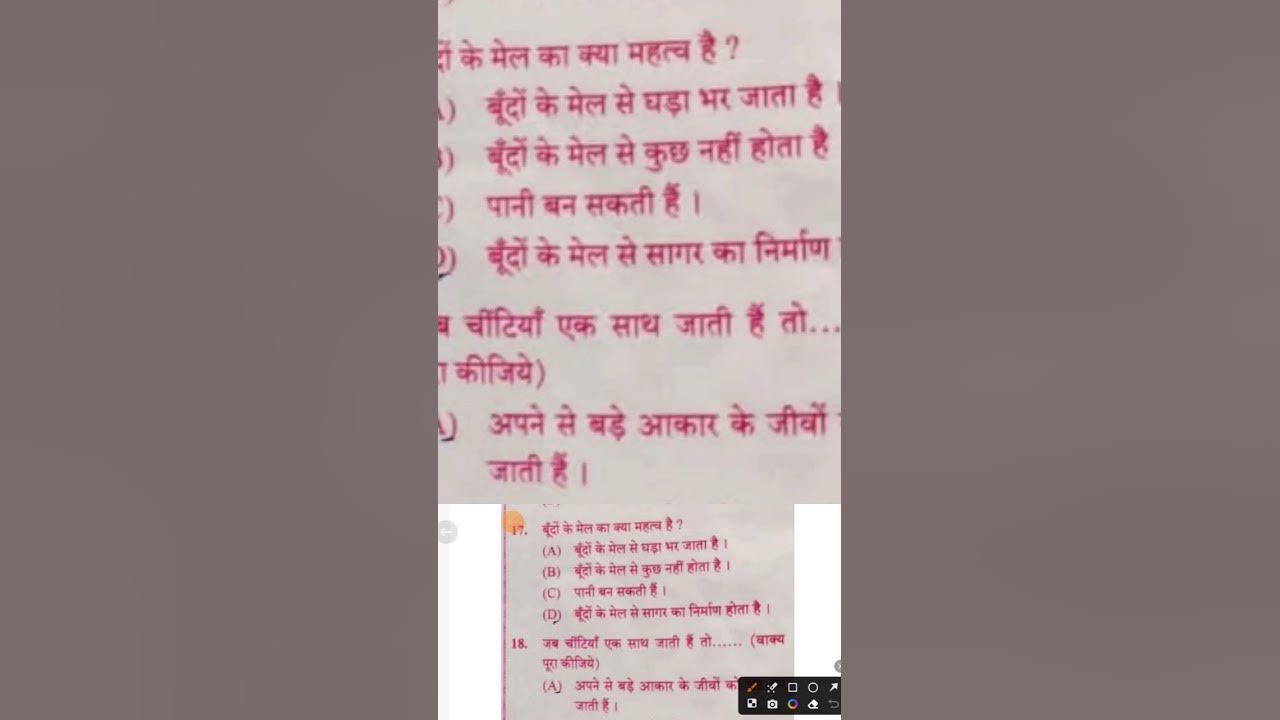 के मेल का क्या महत्व है ?
बूँदों के मेल से घड़ा भर जाता है ।
बूँदों के मेल से कुछ नहीं होता है
पानी बन सकती हैं ।
बूँदों के मेल से सागर का निर्माण
चींटियाँ एक साथ जाती हैं तो...
कीजिये)
अपने से बड़े आकार के जीवों
जाती हैं ।
17. बूँदों के मेल का क्या महत्व है ?
(A) बूँदों के मेल से घड़ा भर जाता है ।
(B) बूँदों के मेल से कुछ नहीं होता है ।
(C) पानी बन सकती हैं ।
(D) बूँदों के मेल से सागर का निर्माण होता है ।
18. जब चींटियाँ एक साथ जाती हैं तो...... (वाक्य
पूरा कीजिये)
(A) अपने से बड़े आकार के जीवों को
जाती हैं ।